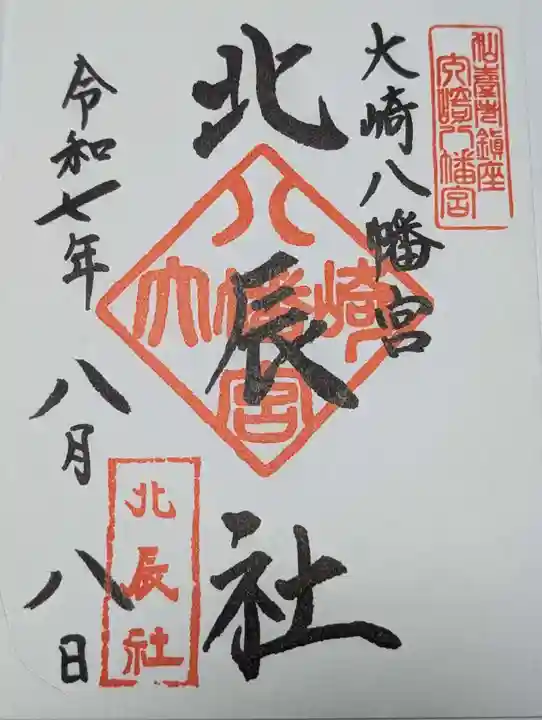 仙臺市鎮座
大崎八幡宮
大崎八幡宮
北辰社
八
大幡崎
宮
令和七年
八月八日
北辰社